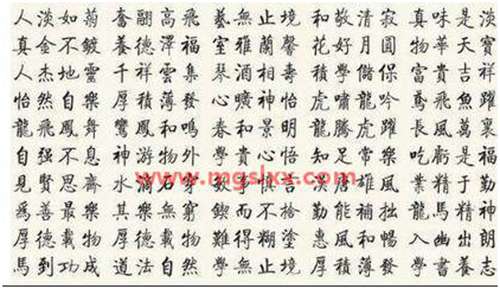 人淡如菊 奮翮高飛 藝無止境 和敬清寂 真味是淡
真金不鍍 養德澤福 室雅蘭馨 花好月圓 物華天寶
人杰地靈 千祥雲集 琴酒相壽 積學儲 富貴吉祥
怡然自樂 厚積薄發 心曠神怡 虎嘯龍吟 鳶飛魚躍
龍飛鳳舞 鸞鳳和鳴 春和景明 龍騰虎躍 長風萬裏
自强不息 神游物外 學貴心悟 知足常樂 吃虧是福
見賢思齊 水滴石穿 敏事慎言 雄風 業精于勤
爲善最樂 其樂無窮 鍥而不捨 勤能補拙 龍馬精神
厚德載物 厚德載物 難得糊塗 惠風和暢 入幽出朗
馬到功成 道法自然 學無止境 厚積薄發 學書養志
www.mgslxx.com